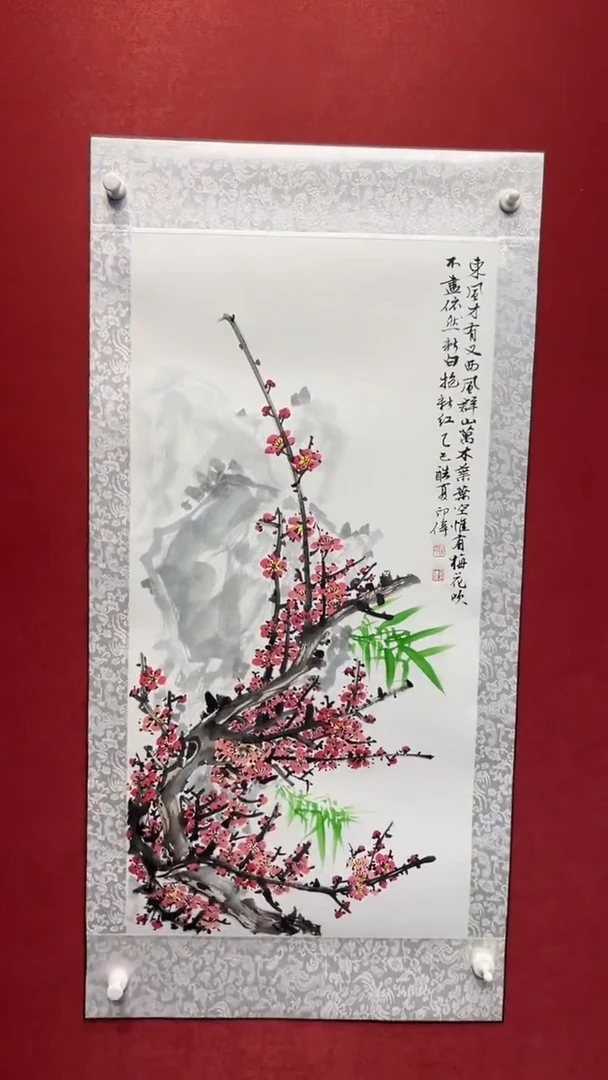 東風才有又西風群山萬木葉葉空惟有梅花吹
不盡依然新白抱新红乙巳酷夏印偉